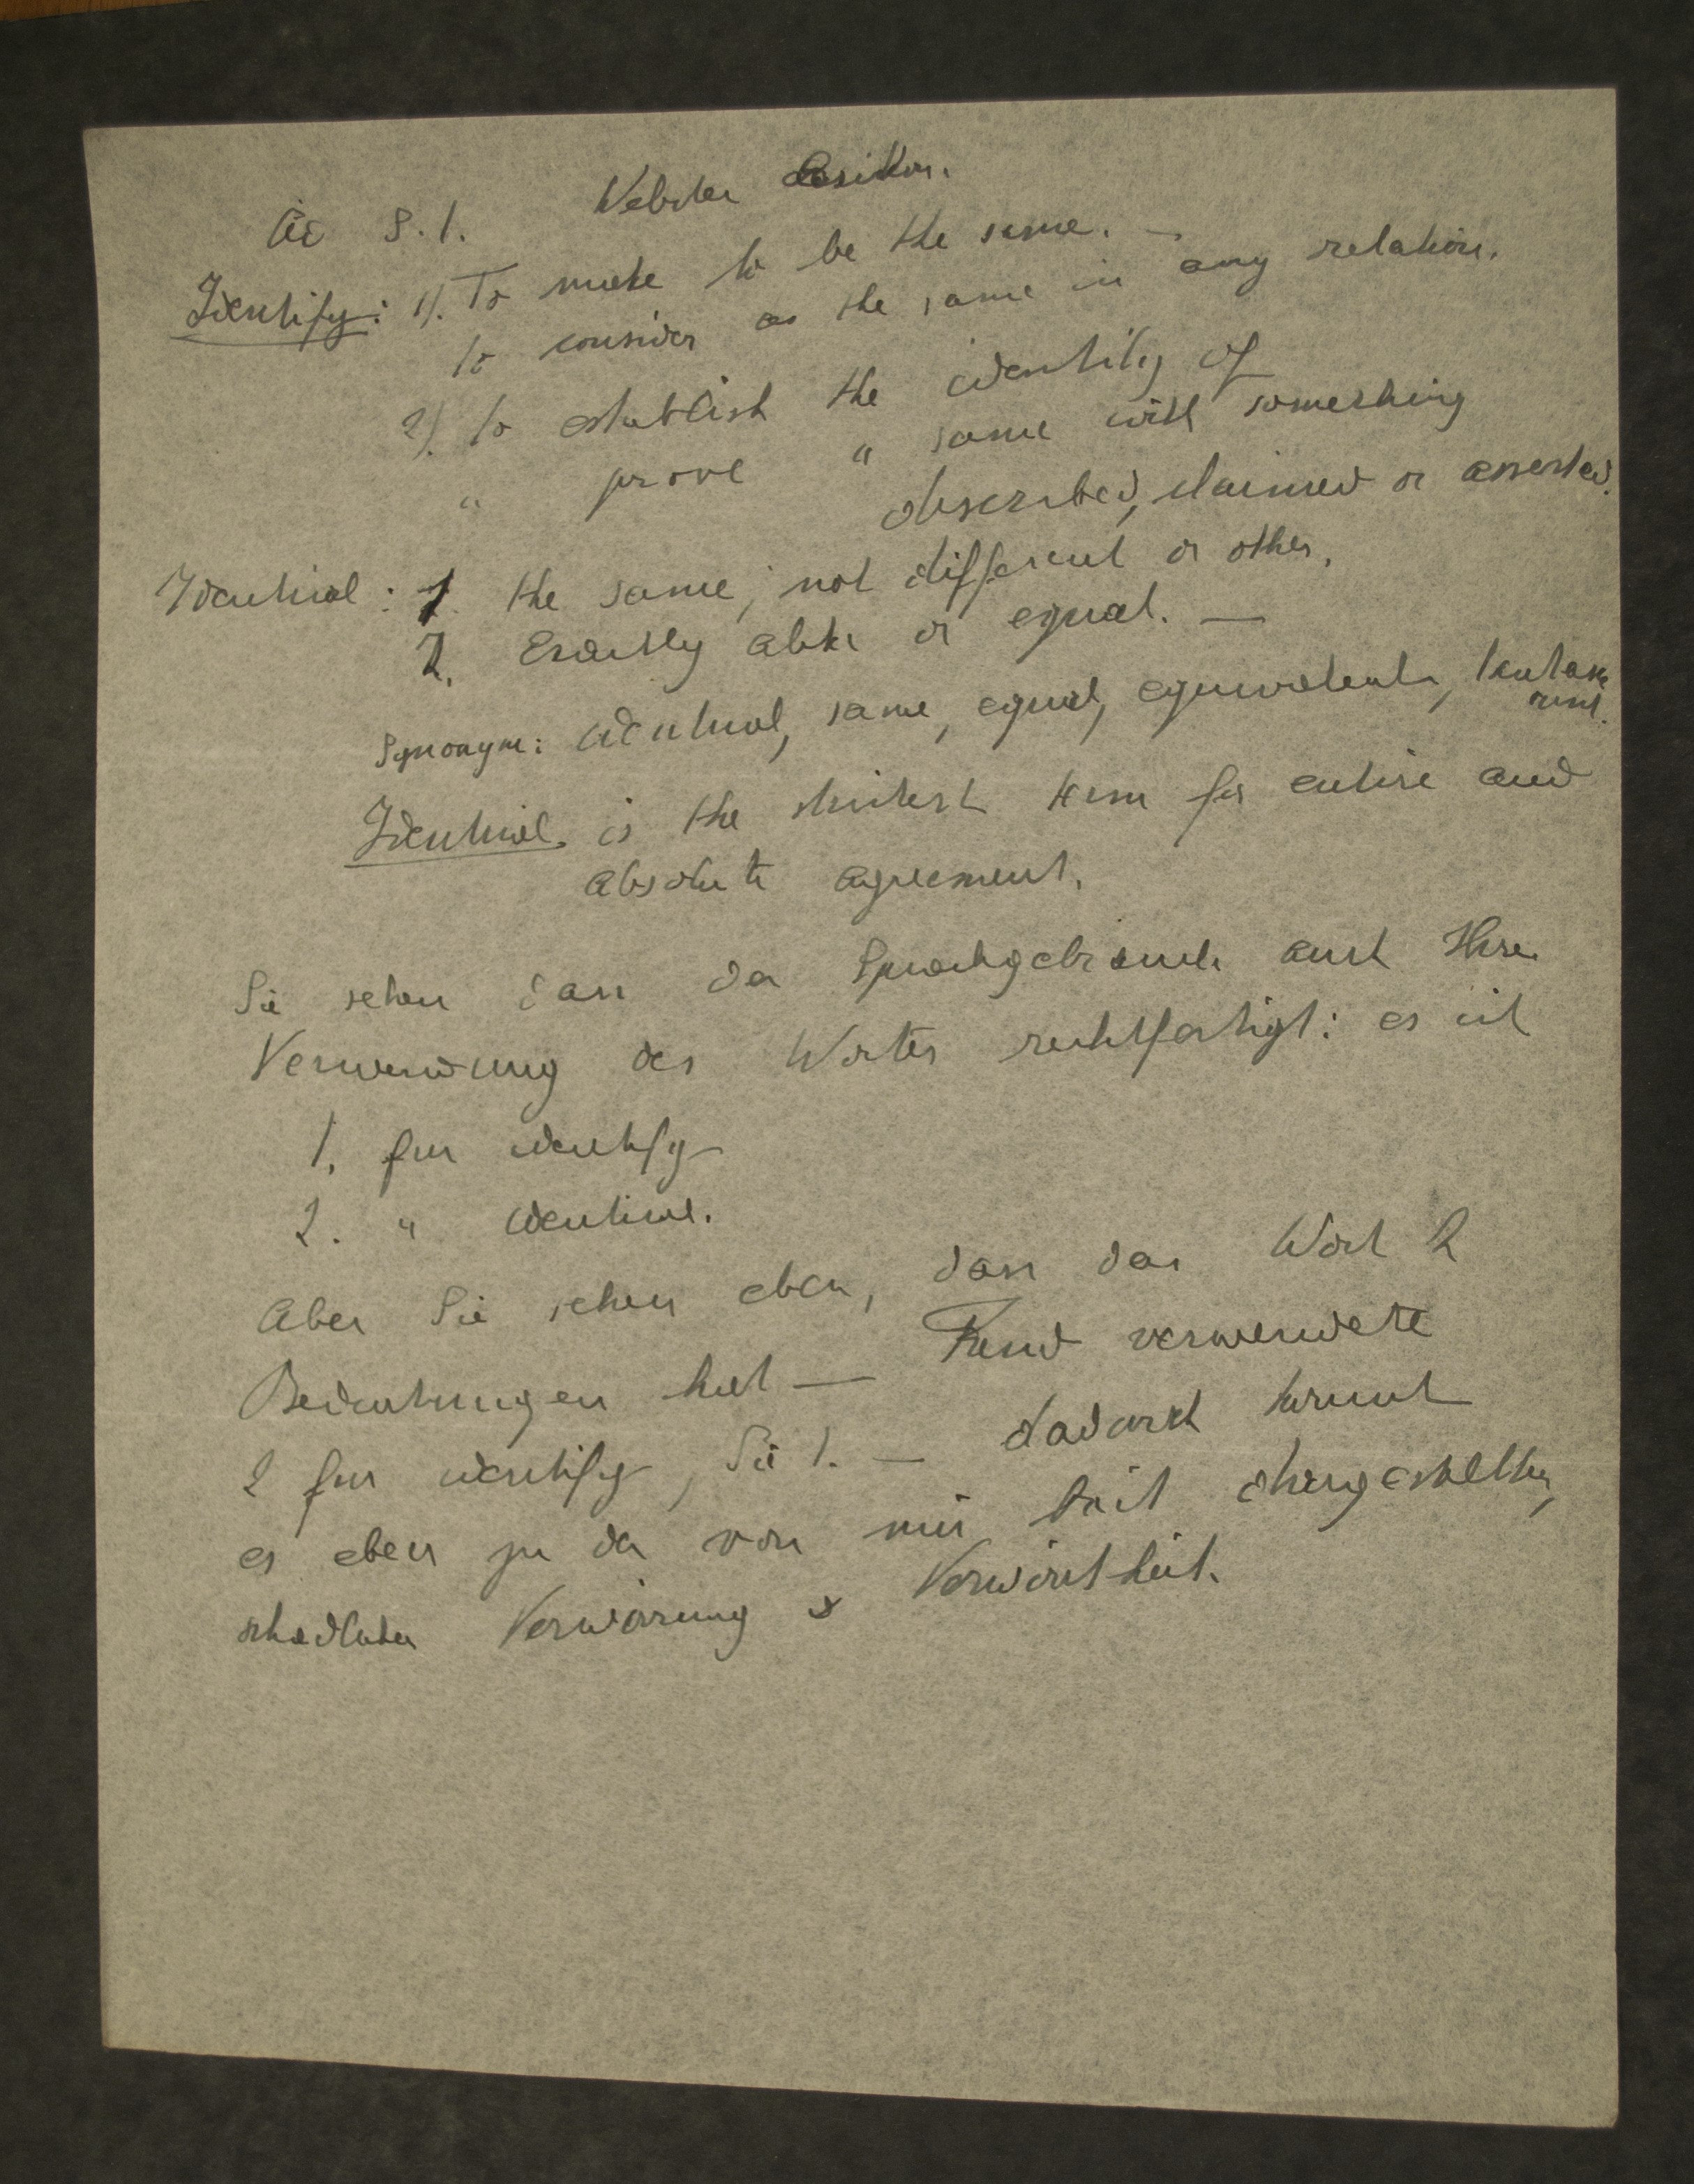 Ad S. 1. Webster Lexikon.
Identify: 1). To make to be the same. —
to consider as the same in any relation.
2). to establish the identity of
" prove " same with something
described, claimed or asserted.
Identical: 1. the same; not different or other.
2. Exactly alike or equal. —
Synonym: identical, same, equal, equivalent,
Identical. is the strictest term for entire and
absolute agreement.
Sie sehen dass der Sprachgebrauch auch Ihre
Verwendung des Wortes rechtfertigt: es ist
1. fur identify
2. " identical.
Aber Sie sehen eben, dass das Wort 2
Bedeutungen hat — Freud verwendete
2 fur identify, Sie 1. — dadurch kommt
es eben zu der von mir
schadlichen Verwirrung & Verwirrtheit.